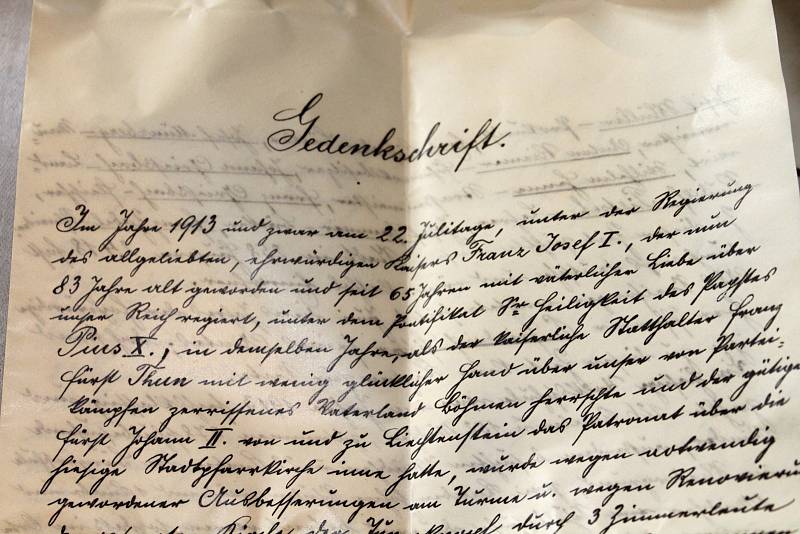 Gedenkschrift.
Im Jahre 1913 und zwar am 22. Julitage, unter der Regierung
des allgeliebten, ehrwürdigen Kaisers Franz Josef I., der nun
83 Jahre alt geworden und seit 65 Jahren mit väterlicher Liebe über
unser Reich regiert, unter dem Pontifikat Sr Heiligkeit des Papstes
Pius X.; in demselben Jahre, als der kaiserliche Statthalter Franz
Fürst Thun mit wenig glücklicher Hand über unser von Partei-
kämpfen zerrissenes Vaterland Böhmen herrschte und der gütige
Fürst Johann II. von und zu Liechtenstein das Patronat über die
hiesige Stadtpfarrkirche inne hatte, wurde wegen notwendig
gewordener Ausbesserungen am Turme u. wegen Renovieru
Kirche der durch 3 Zimmerleute